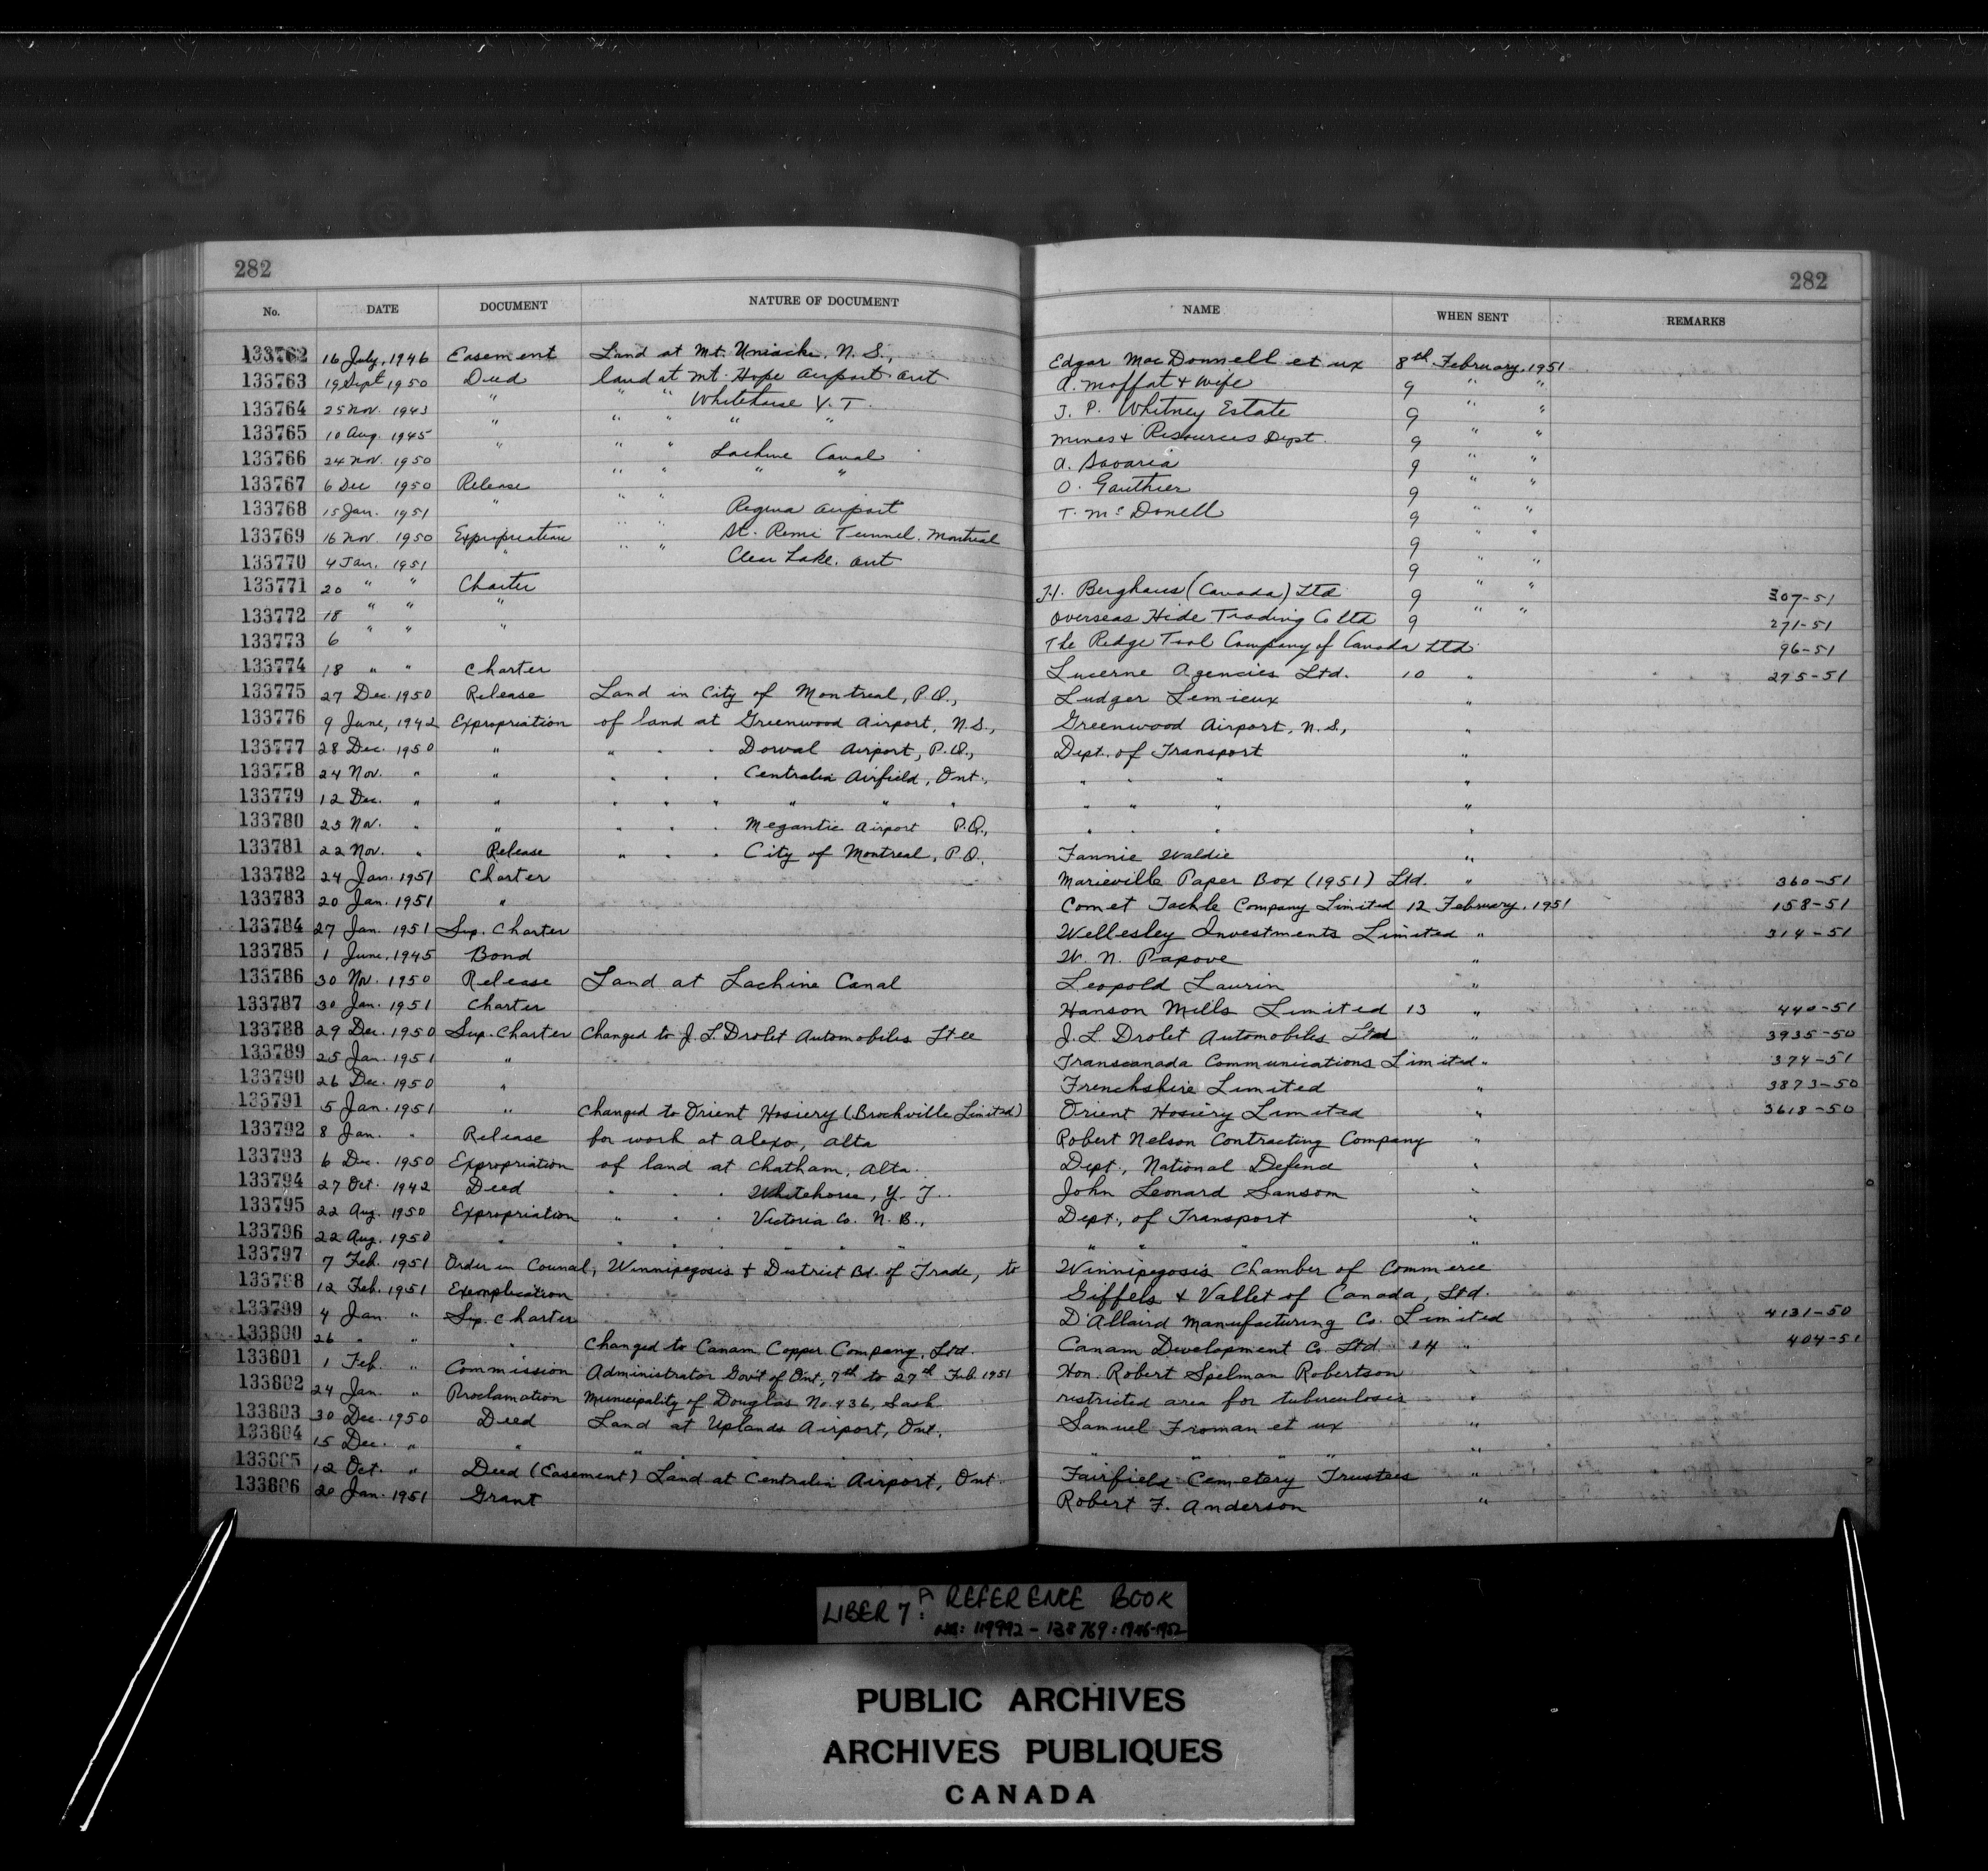 282
282
No. DATE DOCUMENT NATURE OF DOCUMENT NAME WHEN SENT REMARKS
133762 16 July, 1946 Easement Land at Mt. Uniacke, N. S., Edgar MacDonnell et ux 8th February, 1951
133763 19 Sept 1950 Deed land at Mt. Hope Airport. Ont A. Moffat & Wife 9 " "
133764 25 Nov. 1943 " " " Whitehorse Y. T. J. P. Whitney Estate 9 " "
133765 10 Aug. 1945 " " " " " Mines & Resources Dept. 9 " "
133766 24 Nov. 1950 " " " Lachine Canal A. Savaria 9 " "
133767 6 Dec 1950 Release " " " " O. Gauthier 9 " "
133768 15 Jan. 1951 " " " Regina Airport T. McDonell 9 " "
133769 16 Nov 1950 Expropriation " " St. Remi Tunnel. Montreal 9 " "
133770 4 Jan. 1951 " " " Clear Lake. Ont 9 " "
133771 20 " " Charter H. Berghaus (Canada) Ltd 9 " " 307-51
133772 18 " " " Overseas Hide Trading Co Ltd 9 " " 271-51
133773 6 " " " The Ridge Tool Company of Canada Ltd. 96-51
133774 18 " " Charter Lucerne Agencies Ltd. 10 " 275-51
133775 27 Dec. 1950 Release Land in City of Montreal, P.Q., Ludger Lemieux "
133776 9 June, 1942 Expropriation of land at Greenwood Airport, N.S., Greenwood Airport, N.S., "
133777 28 Dec. 1950 " " " " Dorval Airport, P.Q., Dept. of Transport "
133778 24 Nov. " " " " " Centralia Airfield, Ont., " " " "
133779 12 Dec. " " " " " " " " " " " "
133780 25 Nov. " " " " " Megantic Airport P.Q., " " " "
133781 22 Nov. " Release " " " City of Montreal, P.Q. Fannie Waldie "
133782 24 Jan. 1951 Charter Marieville Paper Box (1951) Ltd. " 360-51
133783 20 Jan. 1951 " Comet Tackle Company Limited 12 February, 1951 158-51
133784 27 Jan. 1951 Sup. Charter Wellesley Investments Limited " 314-51
133785 1 June, 1945 Bond W. N. Papove "
133786 30 Nov. 1950 Release Land at Lachine Canal Leopold Laurin "
133787 30 Jan. 1951 Charter Hanson Mills Limited 13 " 440-51
133788 29 Dec. 1950 Sup. Charter Changed to J. L. Drolet Automobiles Ltee J. L. Drolet Automobiles Ltd " 3935-50
133789 25 Jan. 1951 " Transcanada Communications Limited " 374-51
133790 26 Dec. 1950 " Frenchshire Limited " 3873-50
133791 5 Jan. 1951 " Changed to Orient Hosiery (Brockville Limited) Orient Hosiery Limited " 3618-50
133792 8 Jan. " Release for work at Alexo, Alta Robert Nelson Contracting Company "
133793 6 Dec. 1950 Expropriation of land at Chatham, Alta. Dept., National Defend "
133794 27 Oct. 1942 Deed " " " Whitehorse, Y. T. John Leonard Sansom "
133795 22 Aug. 1950 Expropriation " " " Victoria Co. N. B., Dept., of Transport "
133796 22 Aug. 1950 " " " " " " " " " " "
133797 7 Feb. 1951 Order in Council, Winnipegosis & District Bd. of Trade, to Winnipegosis Chamber of Commerce
133798 12 Feb. 1951 Exemplication Giffels & Vallet of Canada, Ltd.
133799 4 Jan. " Sup. Charter D'Allaird Manufacturing Co. Limited 4131-50
133800 26 " " " Changed to Canam Copper Company, Ltd. Canam Development Co. Ltd. 14 " 404-51
133801 1 Feb. " Commission Administrator Gov't of Ont, 7th to 27th Feb. 1951 Hon. Robert Spelman Robertson "
133802 24 Jan. " Proclamation Municipality of Douglas No. 436, Sask. restricted area for tuberculosis "
133803 30 Dec. 1950 Deed Land at Uplands Airport, Ont. Samuel Froman et ux "
133804 15 Dec. " " " " " " " " " "
133805 12 Oct. " Deed (Easement) Land at Centralia Airport, Ont. Fairfield Cemetery Trustees "
133806 20 Jan. 1951 Grant Robert F. Anderson "
LIBER 7A: REFERENCE BOOK
NOS: 119992 - 138769: 1946-1952
PUBLIC ARCHIVES
ARCHIVES PUBLIQUES
CANADA